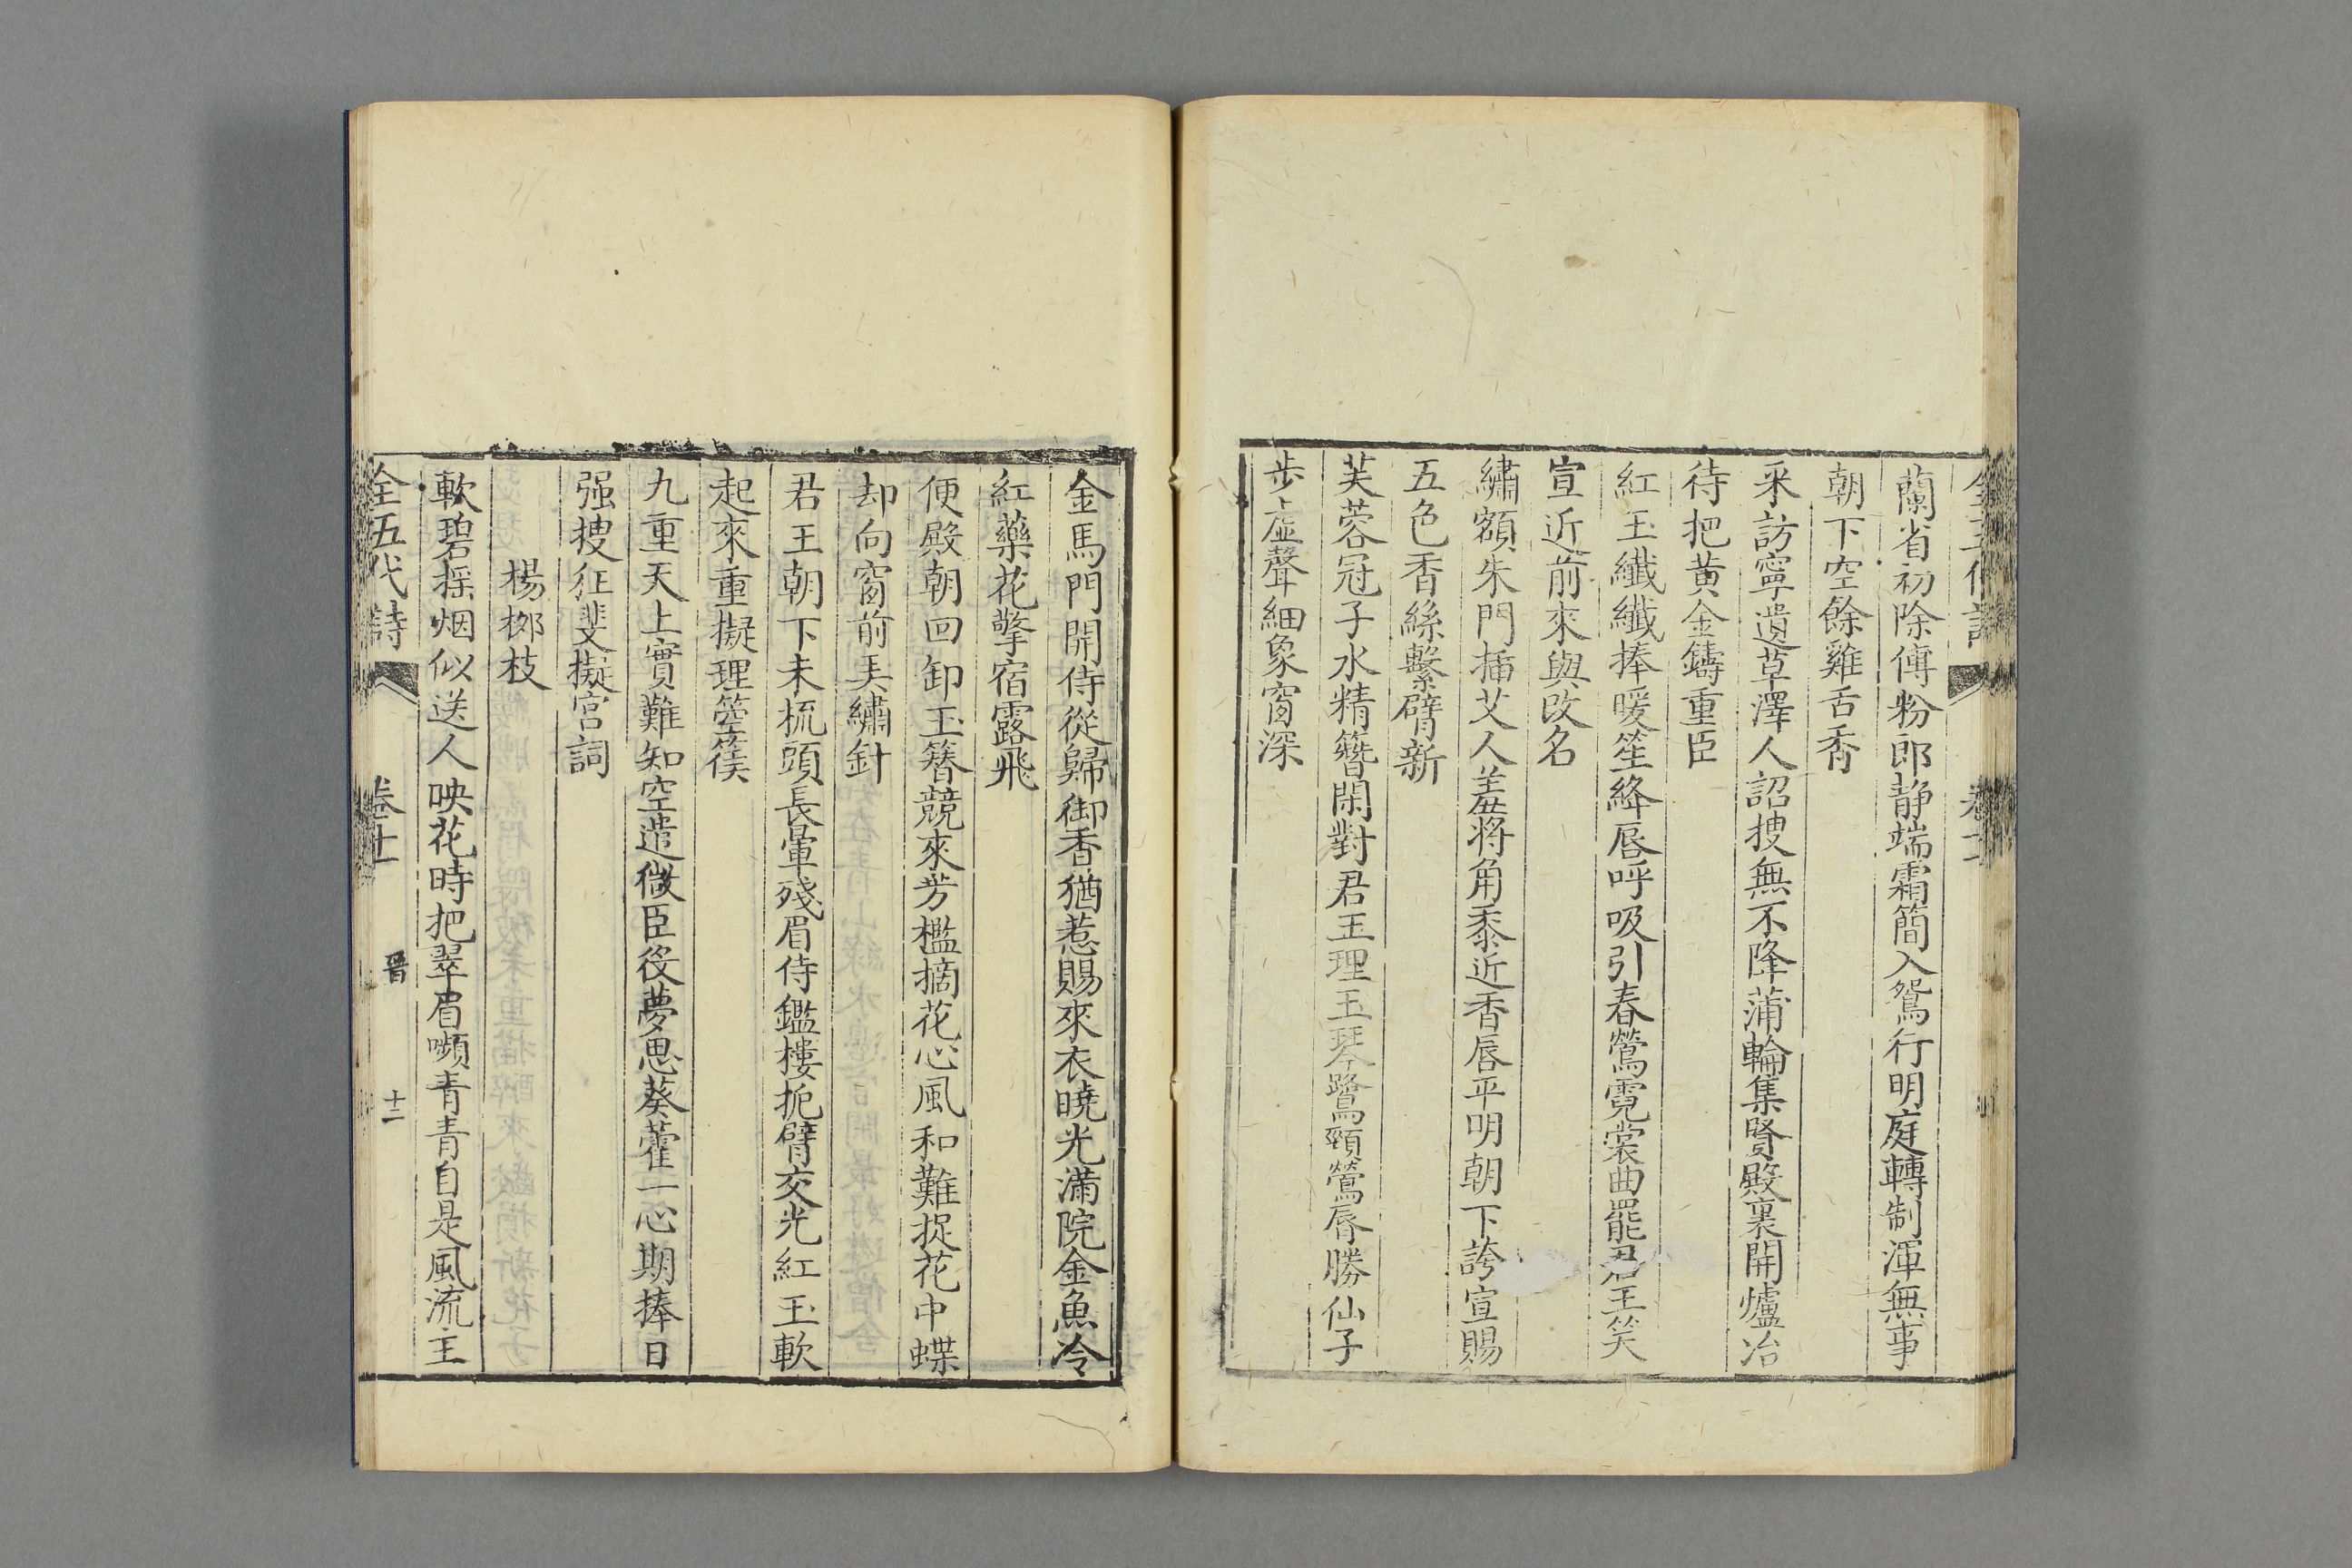 蘭省初除傅粉郎靜端霜簡入鴛行明庭轉制渾無事
朝下空餘雞舌香
采訪寧遺草澤人詔搜無不降蒲輪集賢殿裏開爐冶
待把黃金鑄重臣
紅玉纖纖捧暖笙絳唇呼吸引春鶯霓裳曲罷君王笑
宣近前來與改名
繡額朱門插艾人羞將角黍近香唇平明朝下誇宣賜
五色香絲繫臂新
芙蓉冠子水精簪閑對君王理玉琴鷺頸鶯唇勝仙子
步虛聲細象窗深
金馬門開侍從歸御香猶惹賜來衣曉光滿院金魚冷
紅藥花擎宿露飛
便殿朝回卸玉簪競來芳檻摘花心風和難捉花中蝶
却向窗前弄繡針
君王朝下未梳頭長暈殘眉侍鑑樓扼臂交光紅玉軟
起來重擬理箜篌
九重天上實難知空遣微臣役夢思葵藿一心期捧日
强搜狂斐擬宮詞
楊柳枝
軟碧搖烟似送人映花時把翠眉嚬青青自是風流主
全五代詩
卷十一
晋
十二